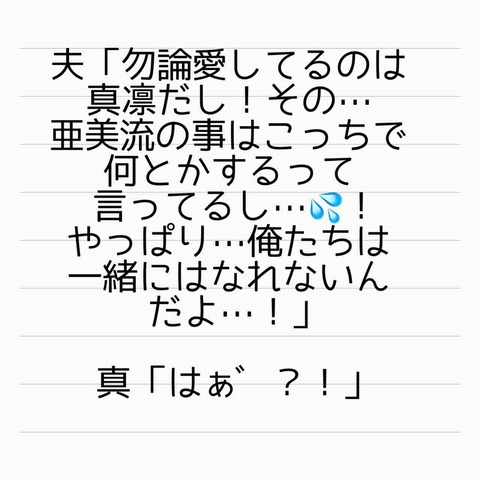 夫「勿論愛してるのは
真凛だし！その…
亜美流の事はこっちで
何とかするって
言ってるし…💦！
やっぱり…俺たちは
一緒にはなれないん
だよ…！」
真「はぁ゛？！」